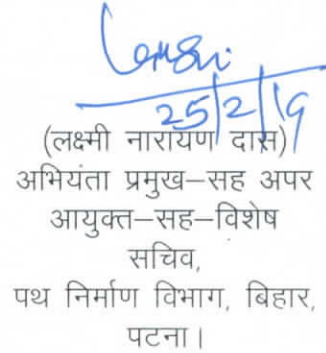 25/2/19
(लक्ष्मी नारायण दास)
अभियंता प्रमुख–सह अपर
आयुक्त–सह–विशेष
सचिव,
पथ निर्माण विभाग, बिहार,
पटना।